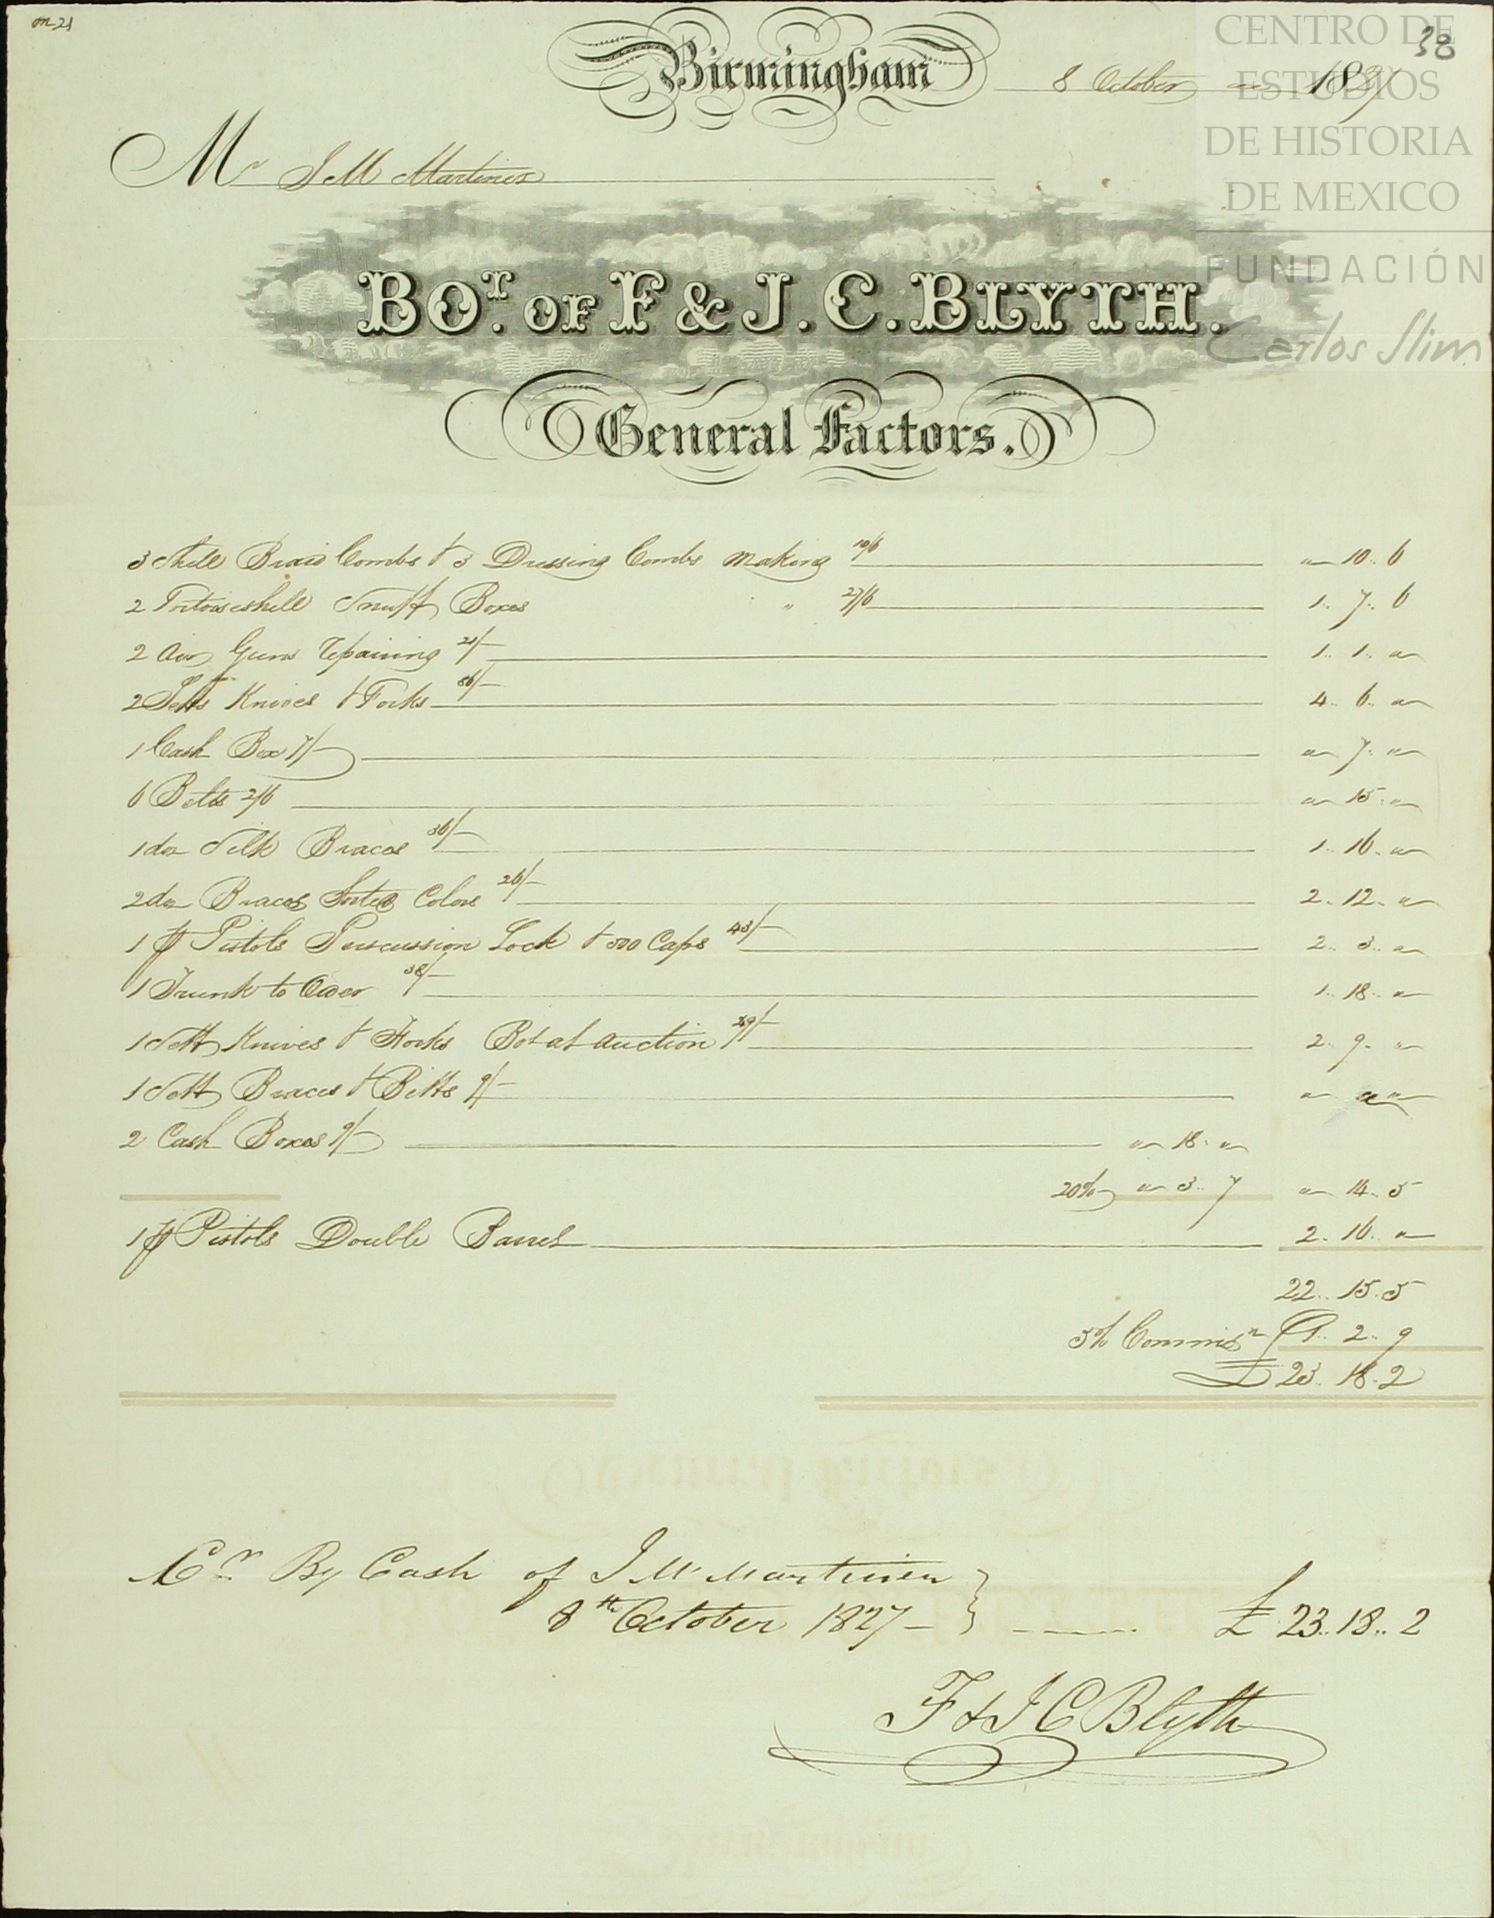 on 21
38
Birmingham 8 October 1827
Mr J M Martinez
BOT. OF F & J. C. BLYTH.
General Factors.
3 Shell Braid Combs & 3 Dressing Combs making 10/6 " 10 .. 6
2 Tortoiseshell Snuff Boxes " 27/6 1 .. 7 .. 6
2 Air Guns Repairing 21/- 1 .. 1 .. "
2 Setts Knives & Forks 86/- 4 .. 6 .. "
1 Cash Box 7/- " 7 .. "
6 Belts 2/6 " 15 .. "
1 doz Silk Braces 36/- 1 .. 16 .. "
2 doz Braces Sorted Colors 26/- 2 .. 12 .. "
1 pr Pistols Percussion Lock & 500 Caps 43/- 2 .. 3 .. "
1 Trunk to Order 38/- 1 .. 18 .. "
1 Sett Knives & Forks Bot at Auction 49/- 2 .. 9 .. "
1 Sett Braces & Bitts 9/- " "
2 Cash Boxes 9/- " 18 .. "
20% " 3 .. 7 " 14 .. 5
1 pr Pistols Double Barrel 2 .. 16 .. "
22 .. 15 .. 5
5% Commissn 1 .. 2 .. 9
£ 23 .. 18 .. 2
Cr By Cash of J M Martinez
8th October 1827 £ 23 .. 18 .. 2
F & J C Blyth
CENTRO DE
ESTUDIOS
DE HISTORIA
DE MEXICO
FUNDACIÓN
Carlos Slim